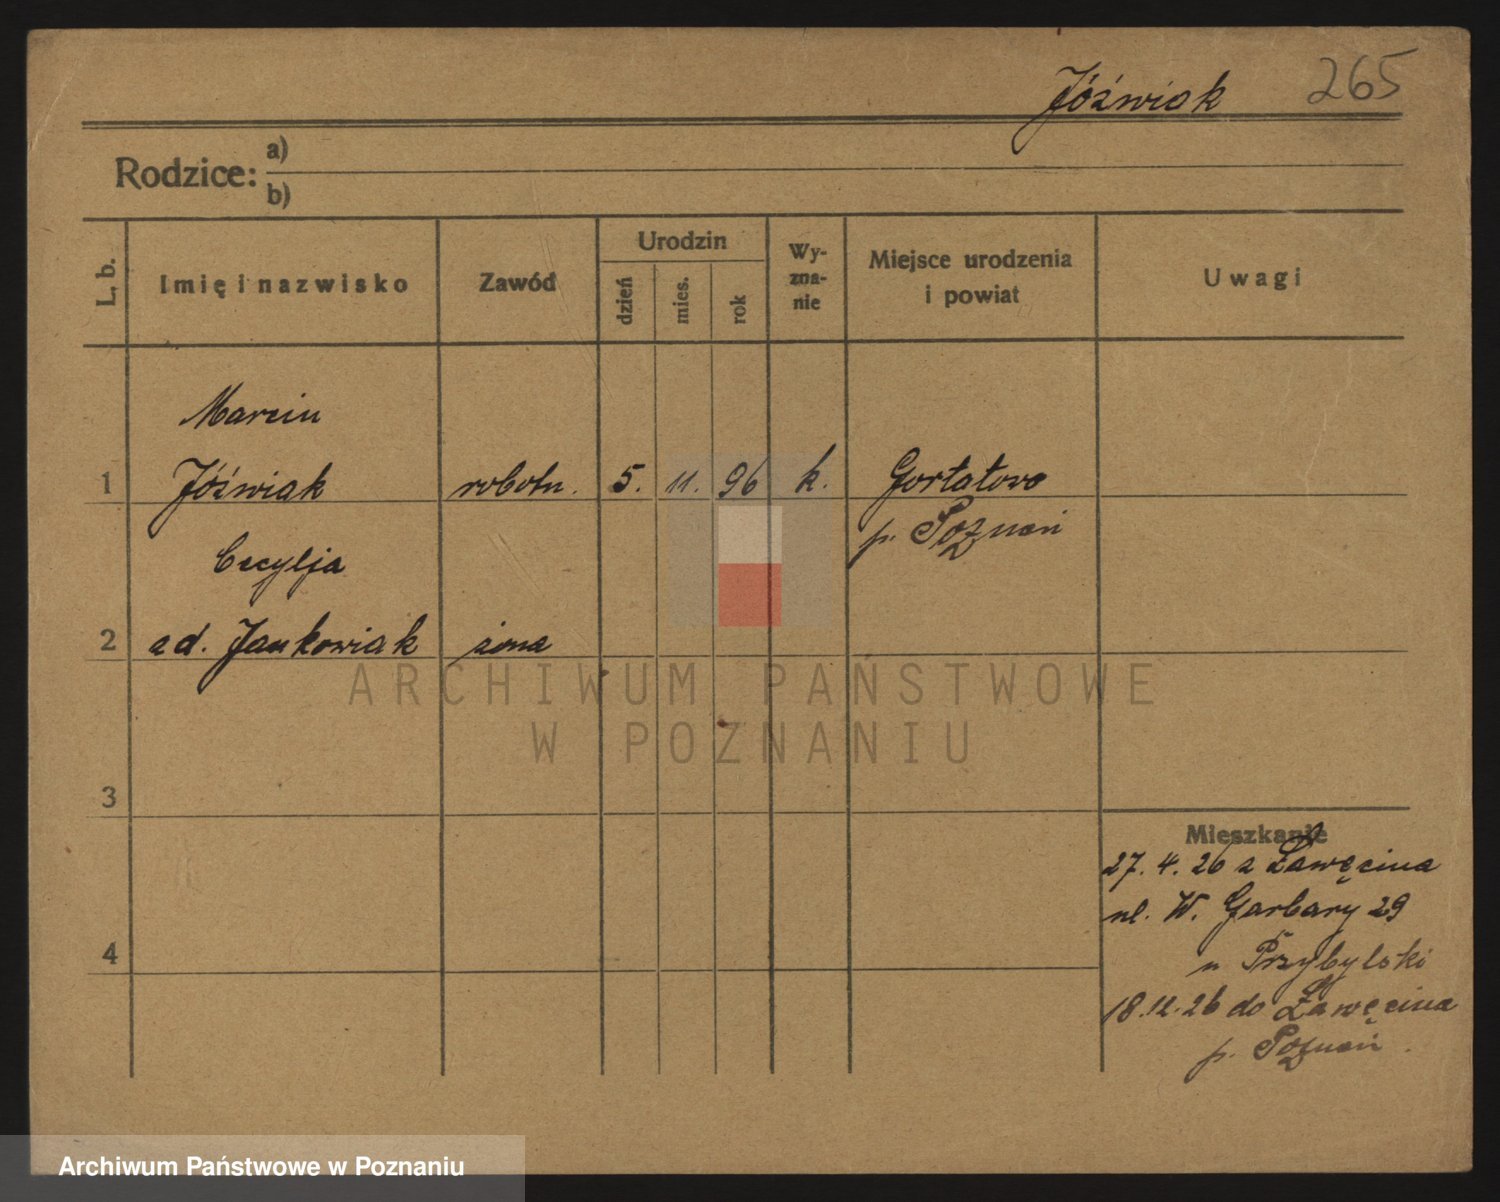 Jóźwiak 265
Rodzice: a)
b)
L. b.
Imię i nazwisko
Zawód
Urodzin
dzień
mies.
rok
Wy-
zna-
nie
Miejsce urodzenia
i powiat
Uwagi
Marcin
1 Jóźwiak robotn. 5. 11. 96 k. Gortatowo
p. Poznań
Cecylja
2 zd. Jankowiak żona
ARCHIWUM PAŃSTWOWE
W POZNANIU
3
Mieszkanie
27. 4. 26 z Ławęcina
ul. W. Garbary 29
u Przybylski
4
18.12.26 do Ławęcina
p. Poznań.
Archiwum Państwowe w Poznaniu